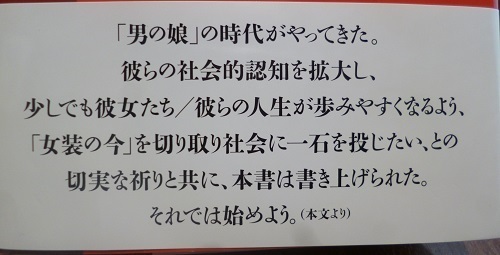 「男の娘」の時代がやってきた。
彼らの社会的認知を拡大し、
少しでも彼女たち／彼らの人生が歩みやすくなるよう、
「女装の今」を切り取り社会に一石を投じたい、との
切実な祈りと共に、本書は書き上げられた。
それでは始めよう。（本文より）